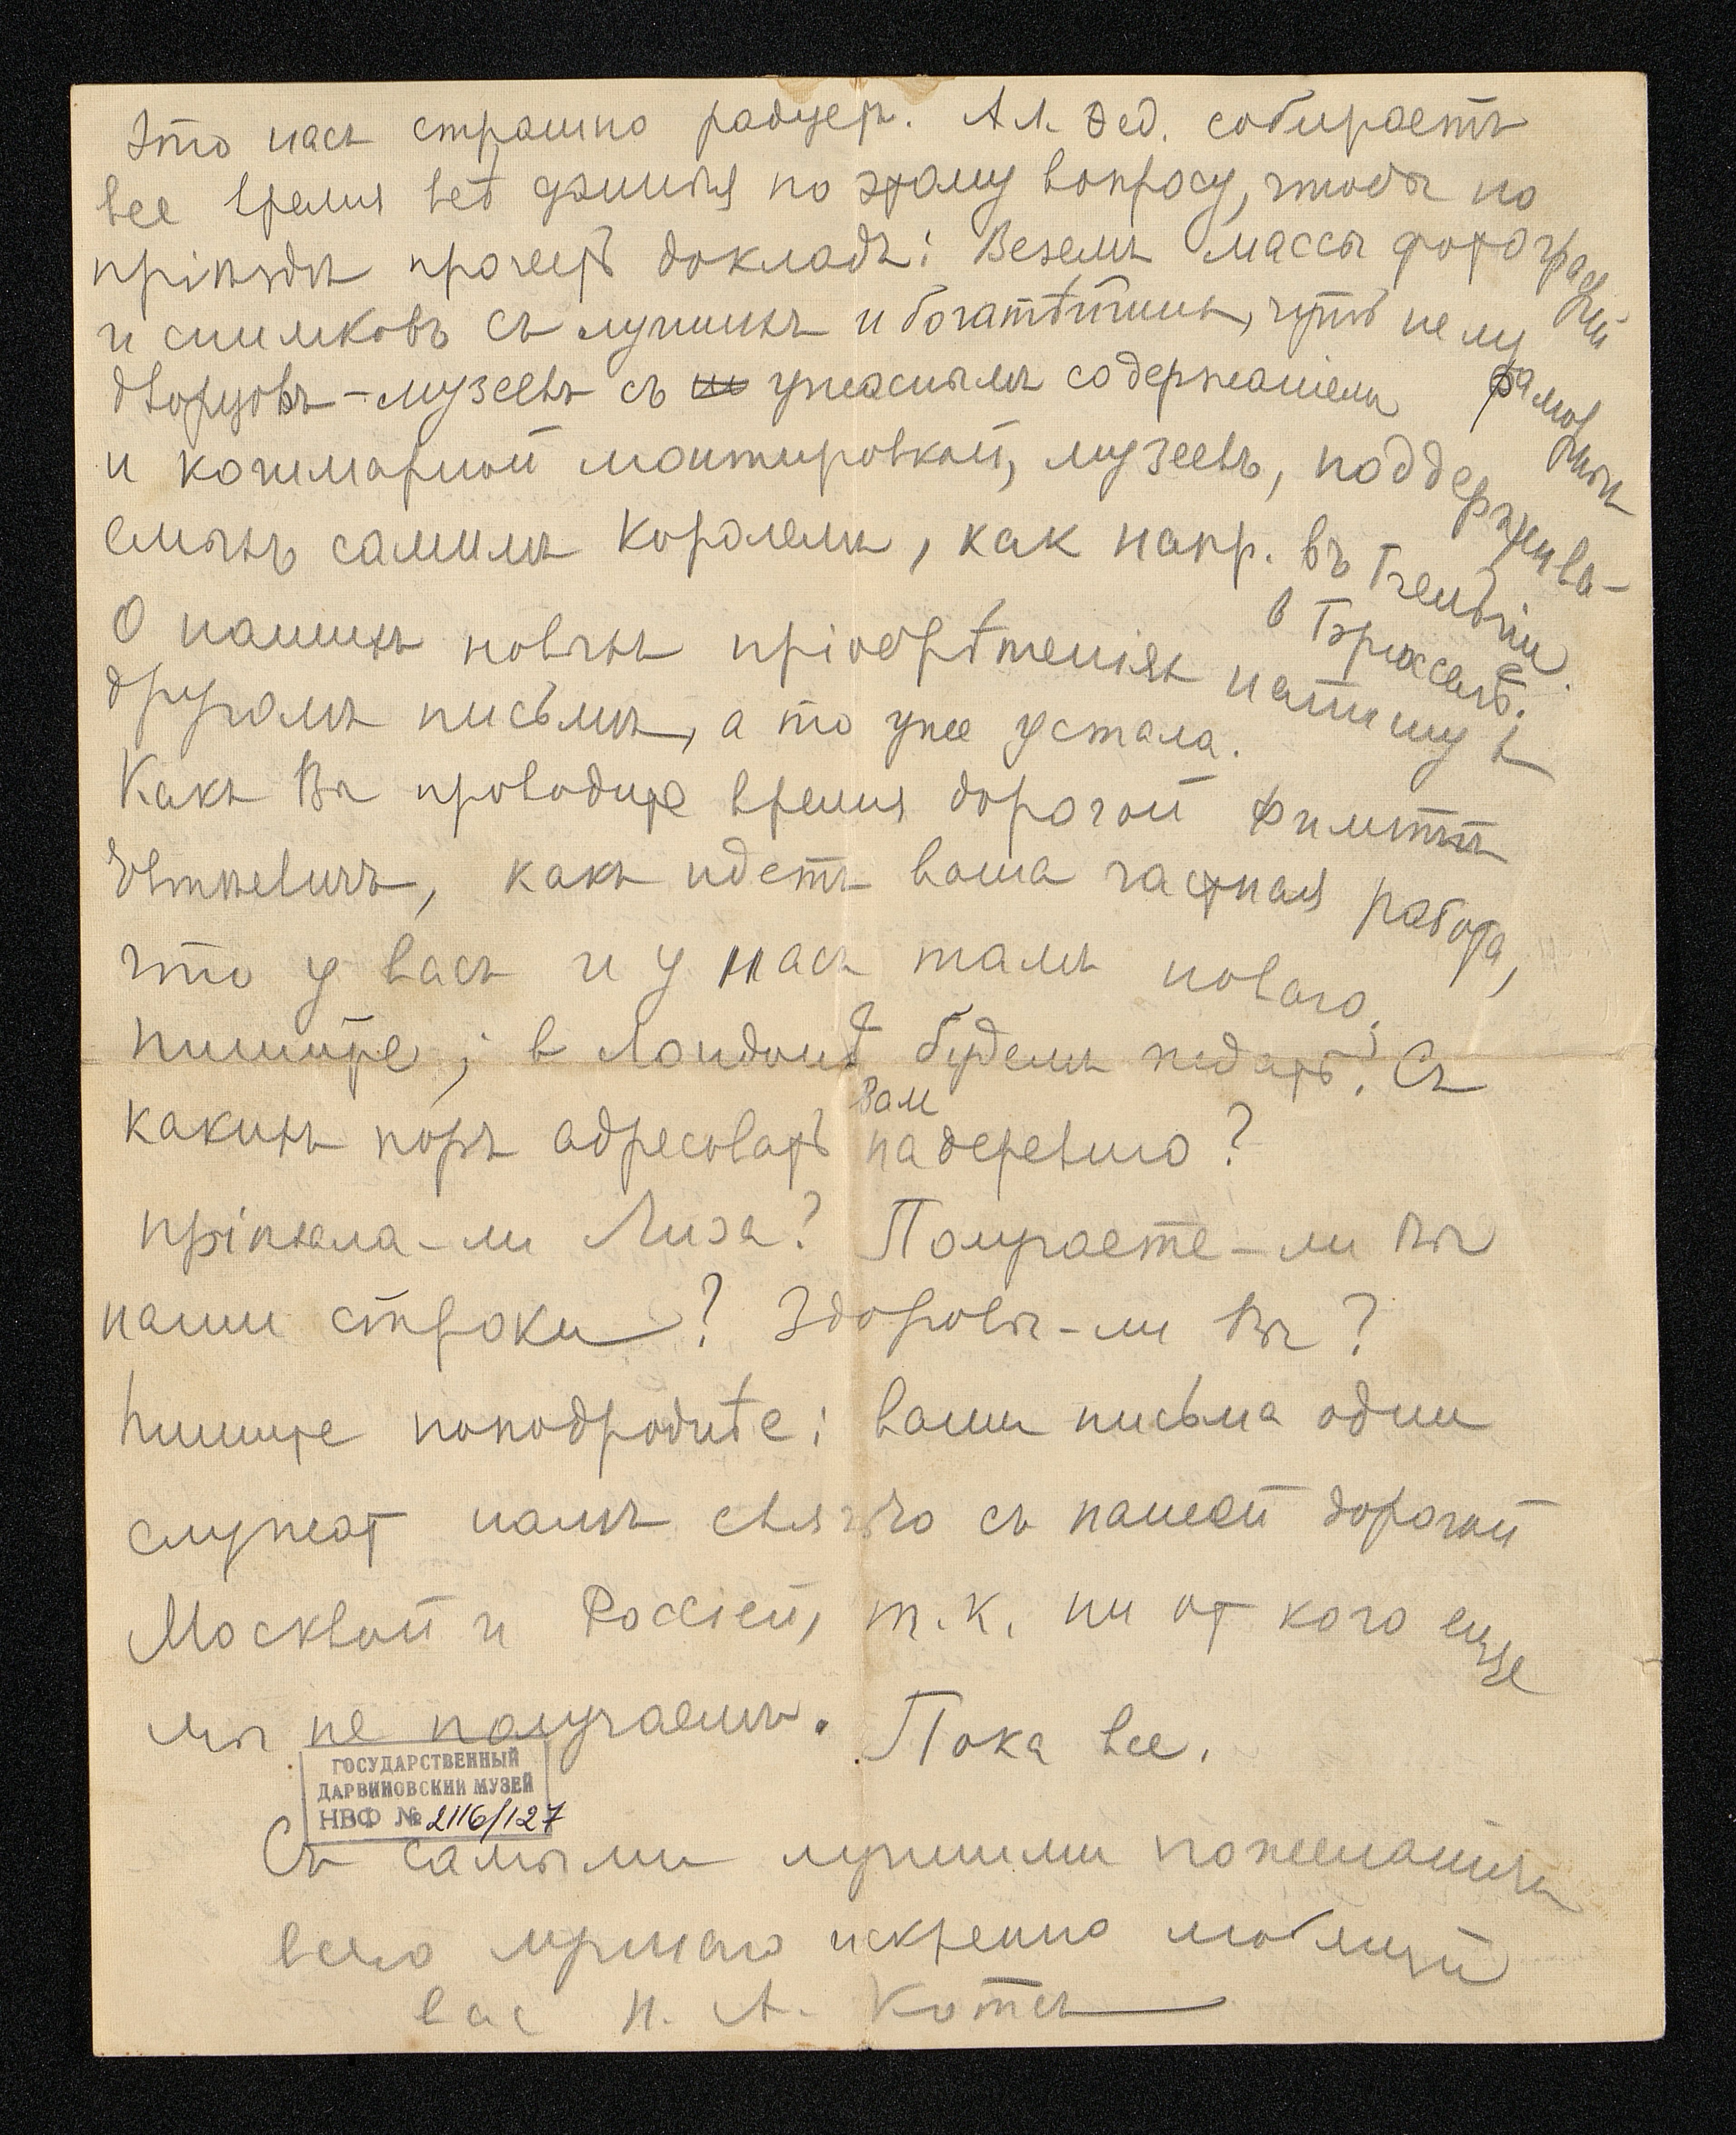 Это насъ страшно радует. Ал. Фед. собираетъ
все время всѣ данныя по этому вопросу, чтобы по
пріѣздѣ прочесть докладъ: Веземъ массы фотографій
и снимковъ съ лучшихъ и богатѣйшихъ, чуть не мраморныхъ
дворцовъ-музеевъ съ ужаснымъ содержаніемъ
и кошмарной монтировкой, музеевъ, поддержива-
емыхъ самимъ королемъ, как напр. въ Бельгіи
в Брюсселѣ.
О нашихъ новыхъ пріобрѣтеніях напишу въ
другомъ письмѣ, а то уже устала.
Какъ Вы проводите время дорогой Филиппъ
Евтѣевичъ, какъ идетъ ваша частная работа,
что у васъ и у насъ тамъ новаго,
пишите; в Лондонѣ будемъ ждать! Съ
какихъ поръ адресовать Вам на деревню?
пріѣхала-ли Лиза? Получаете-ли Вы
наши строки? Здоровы-ли Вы?
Пишите поподробнѣе: ваши письма одни
служат намъ связью съ нашей дорогой
Москвой и Россіей, т.к. ни от кого еще
мы не получаемъ. Пока все.
ГОСУДАРСТВЕННЫЙ
ДАРВИНОВСКИЙ МУЗЕЙ
НВФ № 2116/127
Съ самыми лучшими пожеланіями
всего лучшаго искренно любящій
вас Н. А. Котсъ